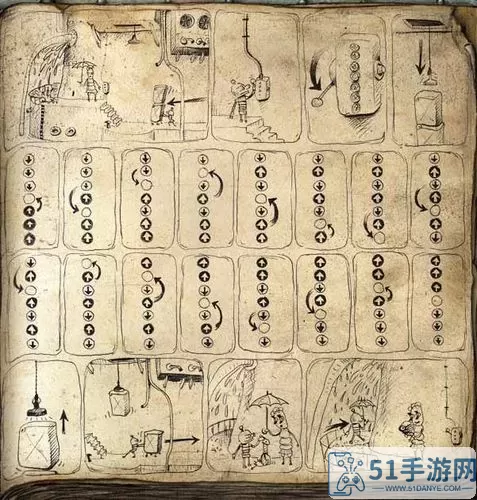 51手游网
WWW.51DANYE.COM